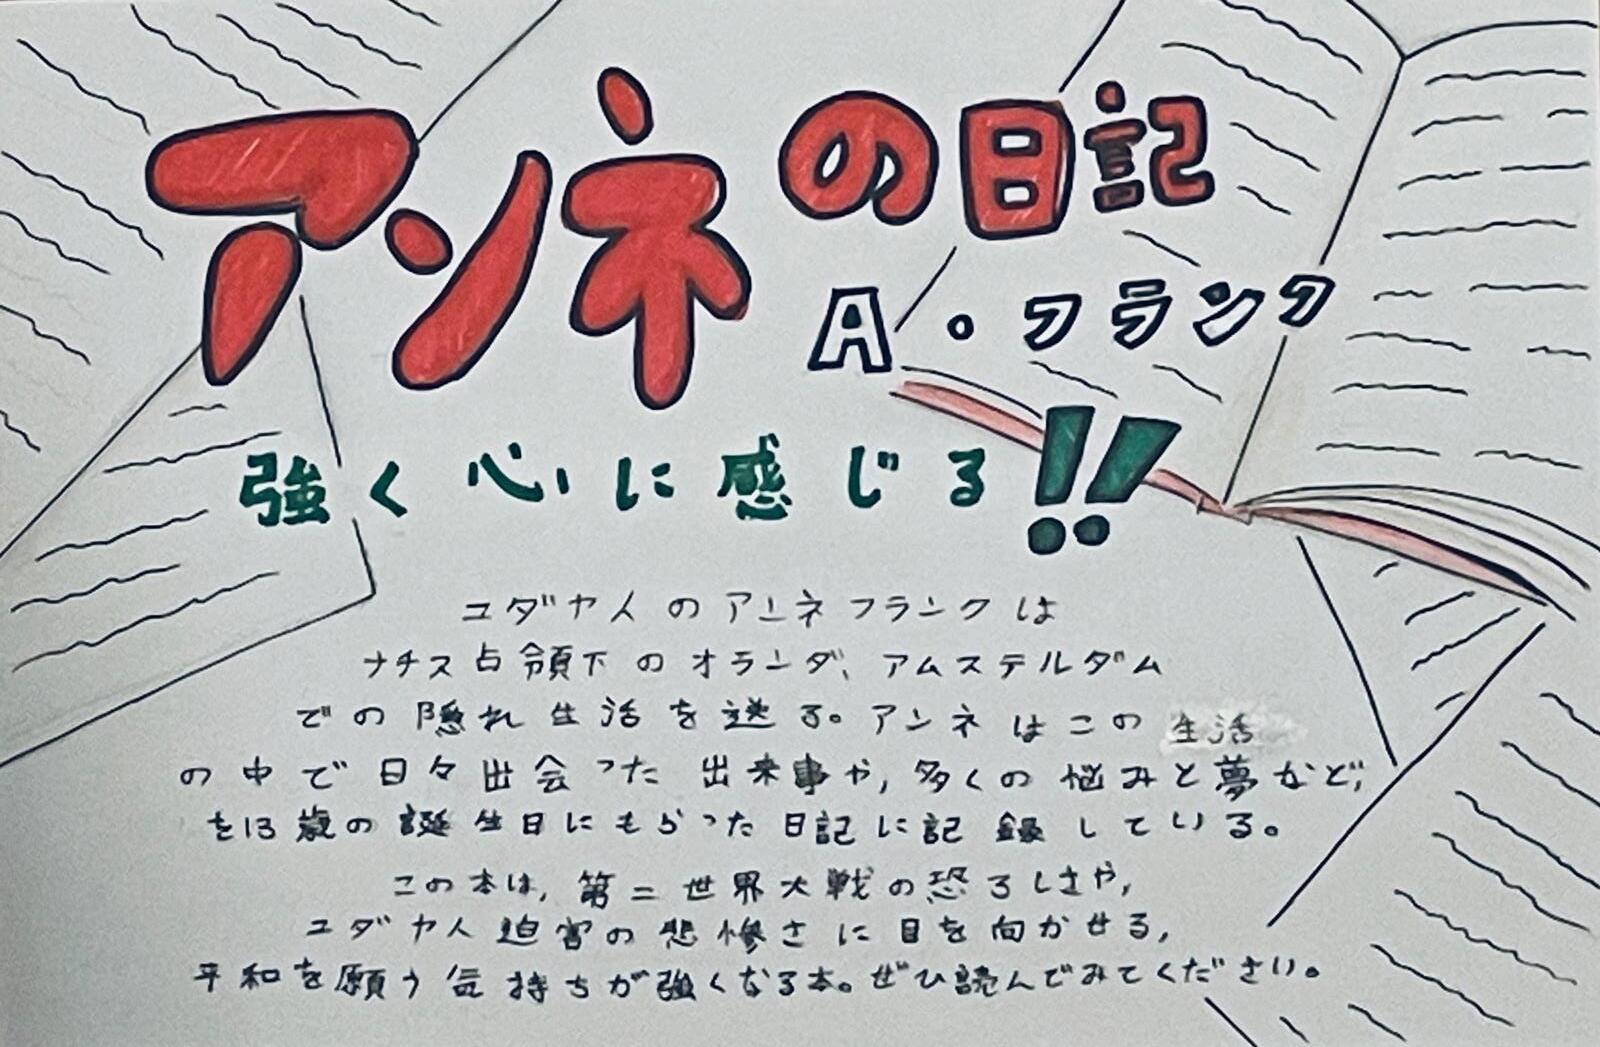 アンネの日記
A・フランク
強く心に感じる!!
ユダヤ人のアンネフランクは
ナチス占領下のオランダ、アムステルダム
での隠れ生活を送る。アンネはこの生活
の中で日々出会った出来事や,多くの悩みと夢など,
を13歳の誕生日にもらった日記に記録している。
この本は,第二世界大戦の恐ろしさや,
ユダヤ人迫害の悲惨さに目を向かせる,
平和を願う気持ちが強くなる本。ぜひ読んでみてください。